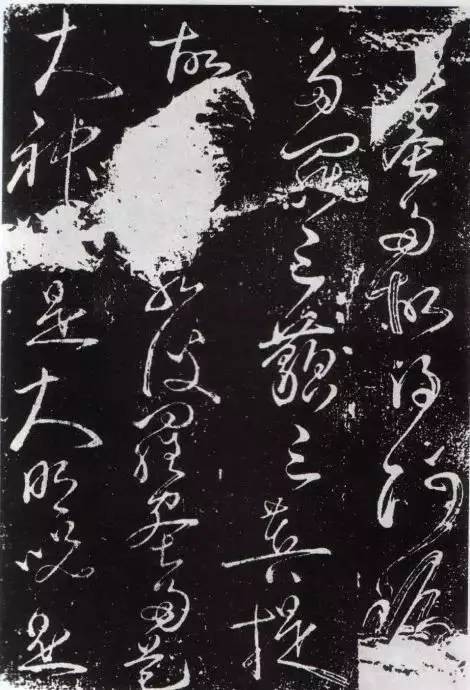 蜜多故得阿耨
多羅三藐三菩提
故波羅蜜多是
大神是大明咒是